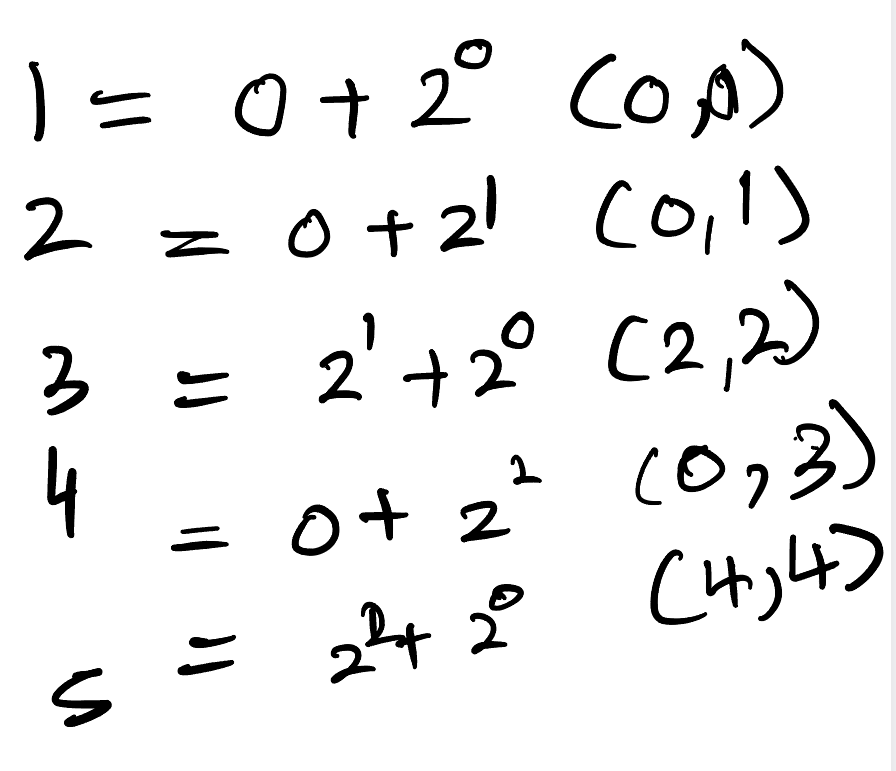 1 = 0 + 2⁰ (0,0)
2 = 0 + 2¹ (0,1)
3 = 2¹ + 2⁰ (2,2)
4 = 0 + 2² (0,3)
5 = 2² + 2⁰ (4,4)